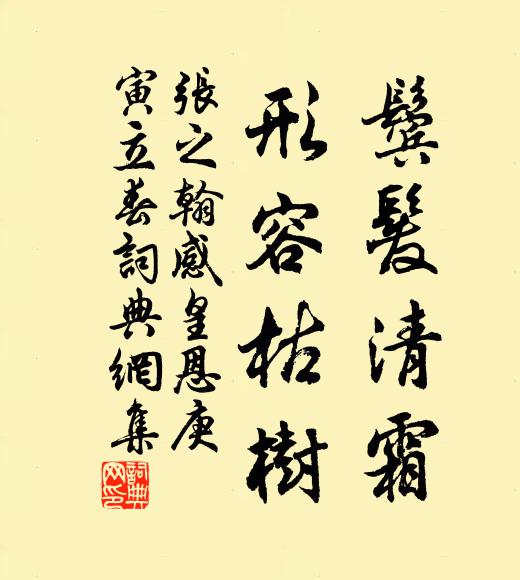 鬢髮清霜
形容枯樹
張之翰感皇恩庚
寅立春詞典網集
詞典網印